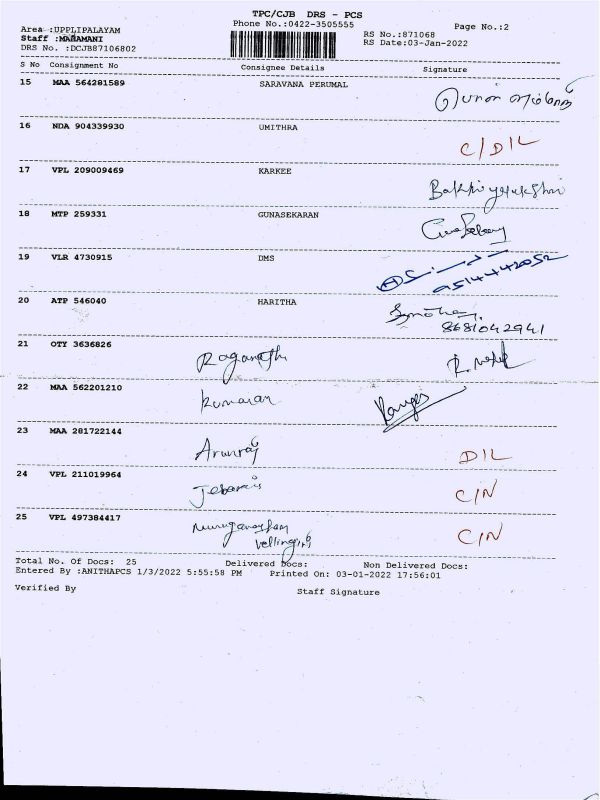 TPC/CJB DRS - PCS
Area :UPPLIPALAYAM Phone No.:0422-3505555 Page No.:2
Staff :MARAMANI RS No.:871068
DRS No. :DCJB87106802 RS Date:03-Jan-2022
S No Consignment No Consignee Details Signature
15 MAA 564281589 SARAVANA PERUMAL
16 NDA 904339930 UMITHRA C/DIL
17 VPL 209009469 KARKEE
18 MTP 259331 GUNASEKARAN
19 VLR 4730915 DMS
9514442052
20 ATP 546040 HARITHA
8681042941
21 OTY 3636826 Raganath
22 MAA 562201210 Kumaran
23 MAA 281722144 Arunraj DIL
24 VPL 211019964 C/N
25 VPL 497384417 C/N
Total No. Of Docs: 25 Delivered Docs: Non Delivered Docs:
Entered By :ANITHAPCS 1/3/2022 5:55:58 PM Printed On: 03-01-2022 17:56:01
Verified By Staff Signature